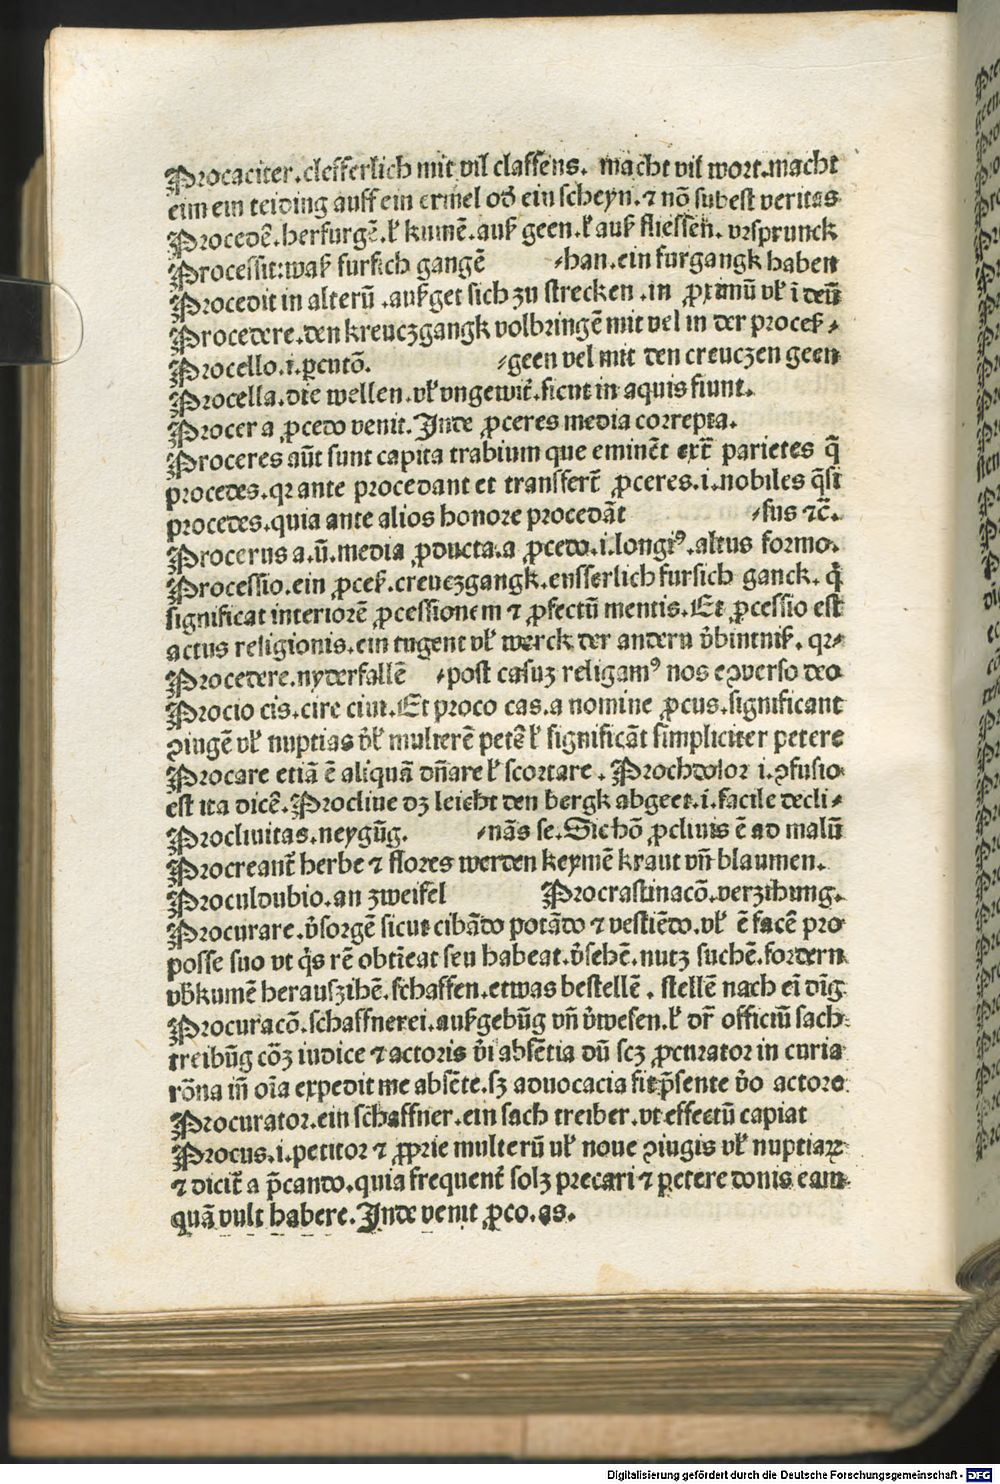 Procaciter.clefferlich mit vil claffens. macht vil wort.macht
eim ein teiding auff ein ermel od̕ ein scheyn.⁊ nō subest veritas
Procedē.herfurgē.ł kumē.auß geen.ł auß fliessen. vrsprunck
Processit:waß fursich gangē ⸗han.ein furgangk haben
Procedit in alterū .außget sich zu strecken .in ꝓximū vł ī deū
Procedere.den kreuczgangk volbringē mit vel in der proceß⸗
Procello.i.ꝑcutō. ⸗geen vel mit den creuczen geen
Procella.die wellen.vł vngewit̄.sicut in aquis fiunt.
Procer a ꝓcedo venit.Inde ꝓceres media correpta.
Proceres aūt sunt capita trabium que eminēt ext̄ parietes q̄
procedes.qꝛ ante procedant et transfert̄ ꝓceres.i.nobiles q̄si
procedes.quia ante alios honore procedāt ⸗sus ⁊c̄.
Procerus a.ū.media ꝓducta.a ꝓcedo.i.longiꝰ.altus formo⸗
Processio.ein ꝓceß.creuczgangk.eusserlich fursich ganck. q̄
significat interiorē ꝓcessionem ⁊ ꝓfectū mentis.Et ꝓcessio est
actus religionis.ein tugent vł werck der andern v̕bintniß. qꝛ⸗
Procedere.nyderfallē ⸗post casuꝫ religamꝰ nos eꝯuerso deo
Procio cis.cire ciui.Et proco cas.a nomine ꝓcus.significant
ꝯiugē vł nuptias v̕ł mulierē petē ł significāt simpliciter petere
Procare etiā ē aliquā dn̄are ł scortare . Prochdolor i.ꝯfusio
est ita dicē.Procliue dꝫ leicht den bergk abgeet.i.facile decli⸗
Procliuitas.neygūg. ⸗nās se.Sic hō ꝓcliuis ē ad malū
Procreant̄ herbe ⁊ flores werden keymē kraut vn̄ blaumen.
Proculdubio.an zweifel Procrastinacō.verzihung.
Procurare.v̕sorgē sicut cibādo potādo ⁊ vestiēdo.vł ē facē pro
posse suo vt q̄s rē obtieat seu habeat.v̕sehē.nutz suchē.fordern
vb̕kumē herauszihē.schaffen.etwas bestellē . stellē nach ei dīg
Procuracō.schaffnerei.außgebūg vn̄ v̕wesen.ł dr̄ officiū sach⸗
treibūg cōꝫ iudice ⁊ actoris v̕i absētia dū scꝫ ꝓcurator in curia
rōna in̄ oīa expedit me absēte.sꝫ aduocacia fit p̄sente v̕o actore
Procurator.ein schaffner.ein sach treiber.vt effectū capiat
Procus.i.petitor ⁊ ꝓprie mulierū vł noue ꝯiugis vł nuptiaꝝ
⁊ dicit̄ a p̄cando.quia frequent̄ solꝫ precari ⁊ petere donis eam
quā vult habere.Inde venit ꝓco.as.
Digitalisierung gefördert durch die Deutsche Forschungsgemeinschaft - DFG